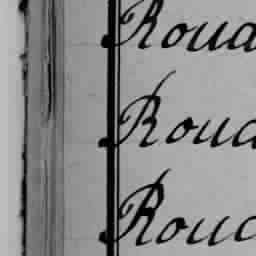 Roua
Roua
Roua